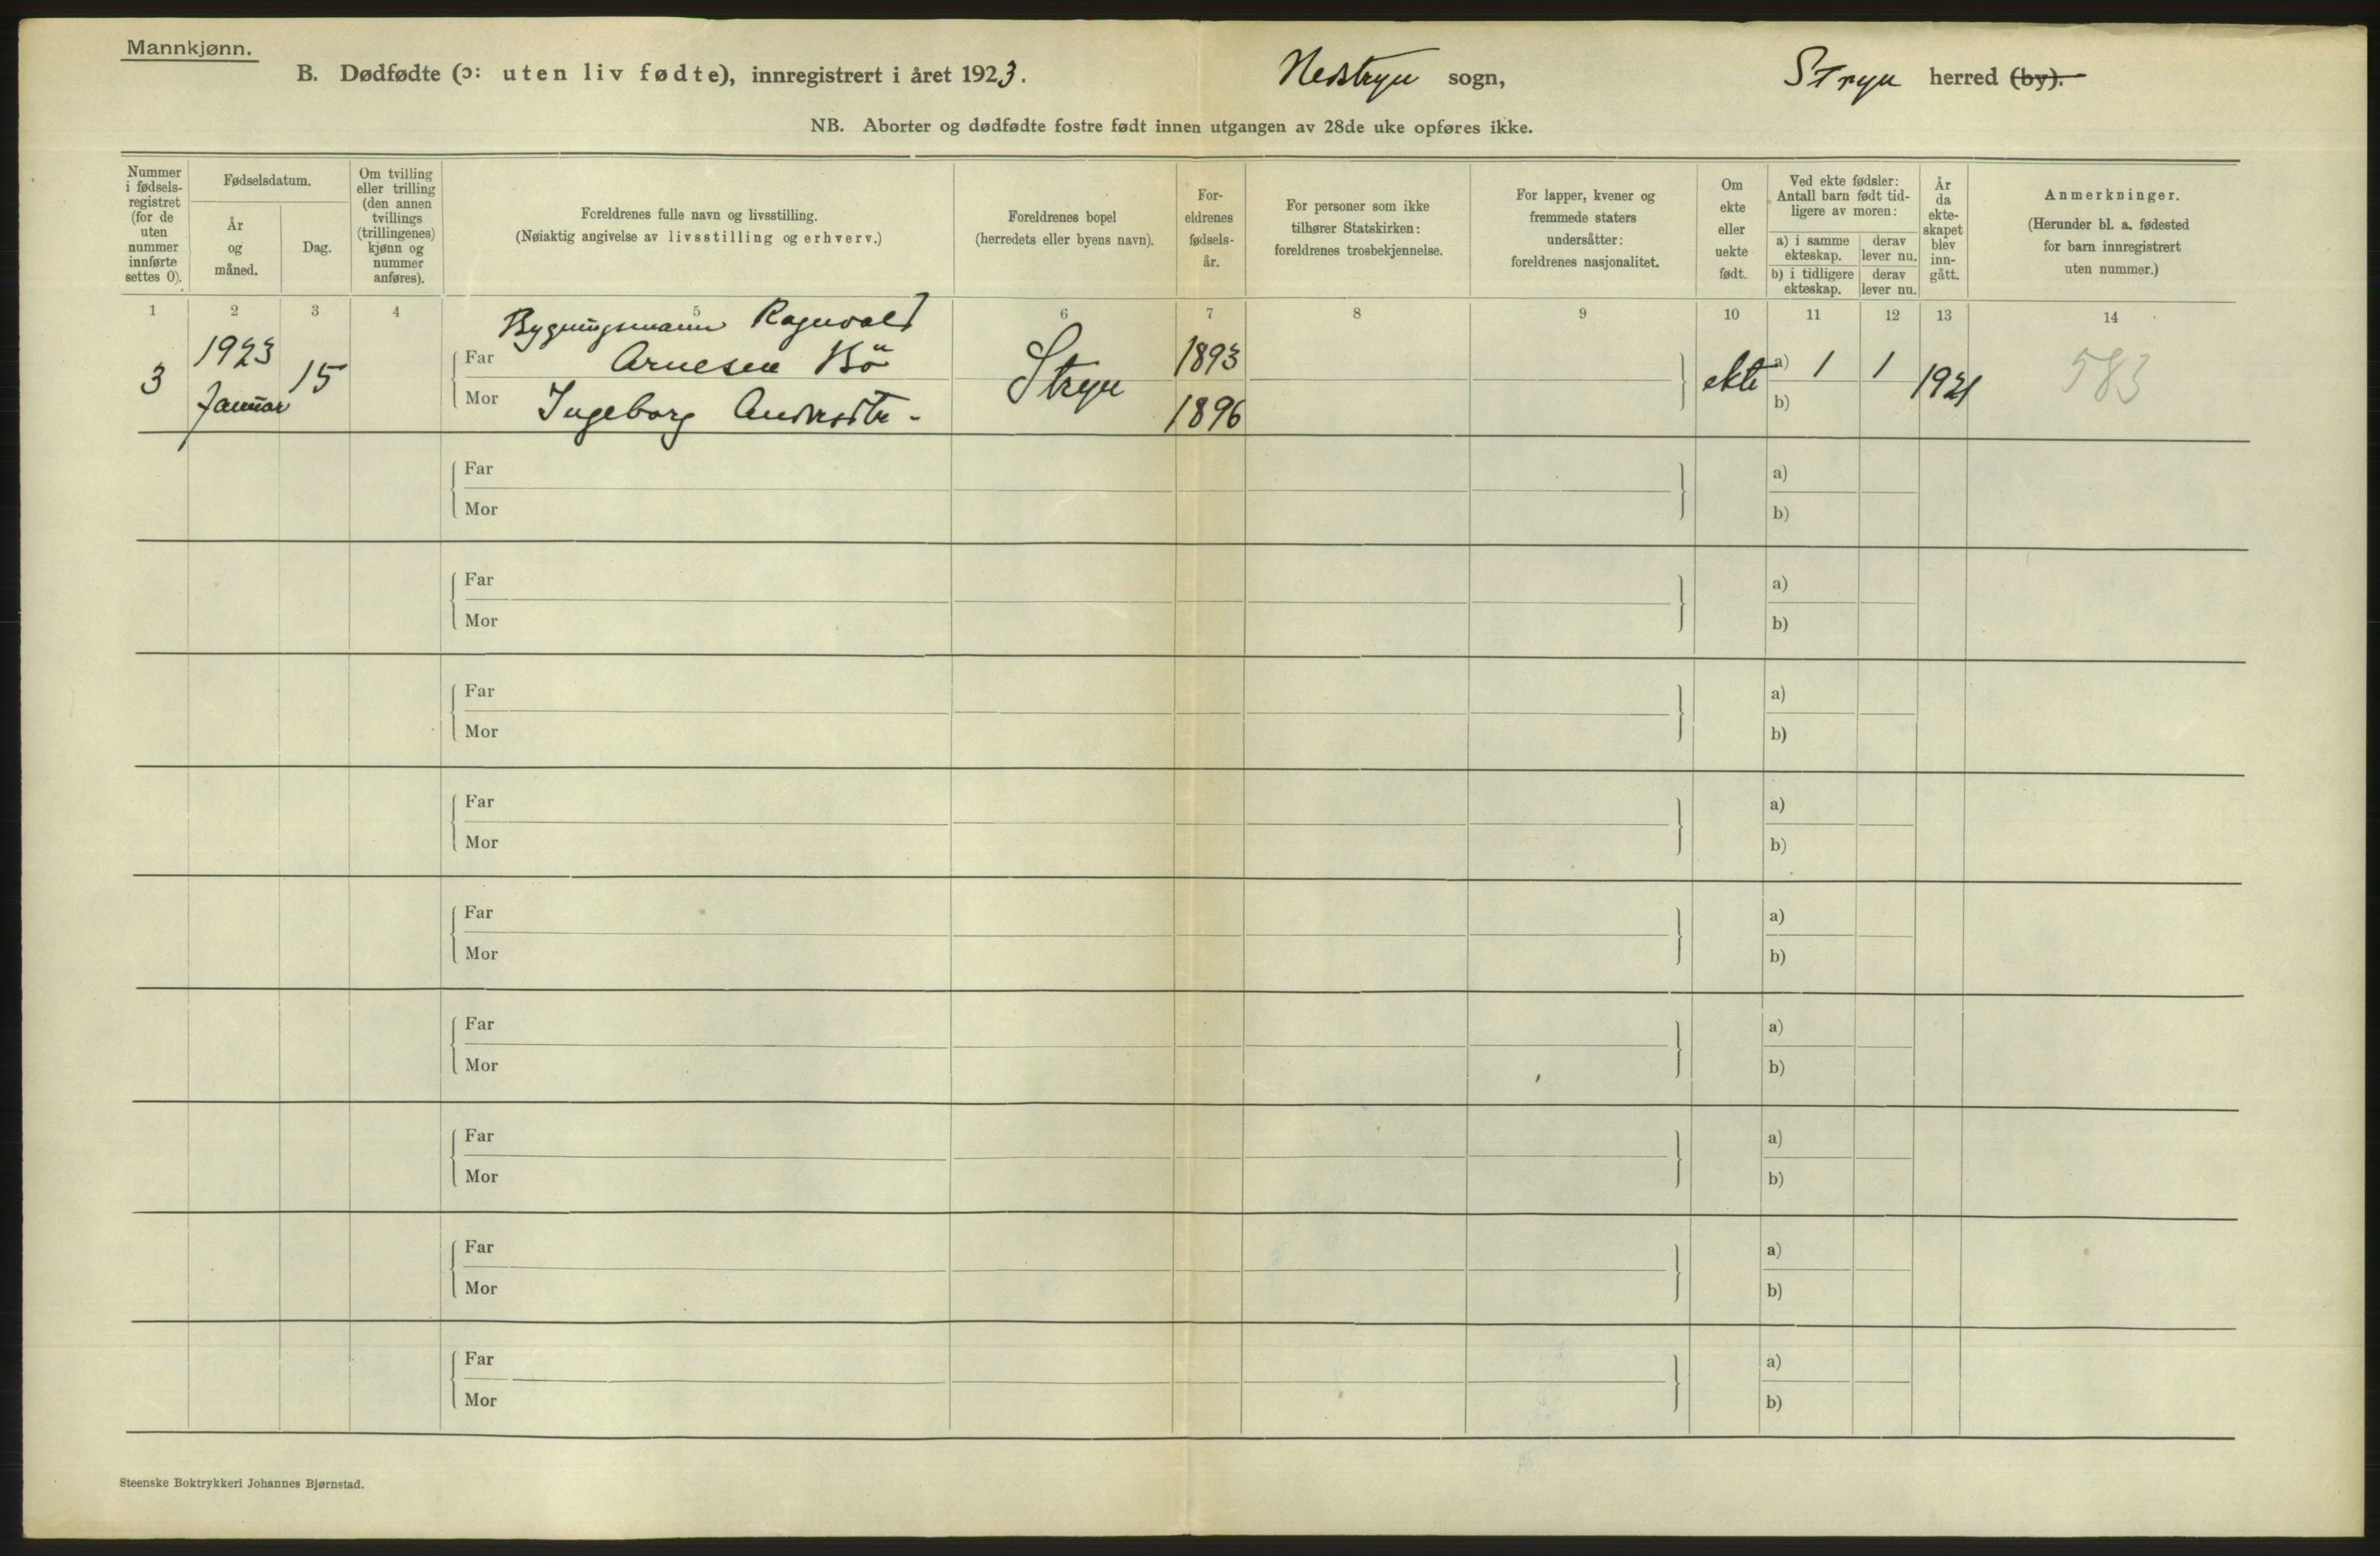 Mannkjønn.
B. Dødfødte (ɔ: uten liv fødte), innregistrert i året 1923. Nedstryn sogn, Stryn herred (by).
NB. Aborter og dødfødte fostre født innen utgangen av 28de uke opføres ikke.
Nummer i fødsels-registret (for de uten nummer innførte settes 0).
Fødselsdatum.
År og måned.
Dag.
Om tvilling eller trilling (den annen tvillings (trillingenes) kjønn og nummer anføres).
Foreldrenes fulle navn og livsstilling.
(Nøiaktig angivelse av livsstilling og erhverv.)
Foreldrenes bopel
(herredets eller byens navn).
For-eldrenes fødsels-år.
For personer som ikke tilhører Statskirken: foreldrenes trosbekjennelse.
For lapper, kvener og fremmede staters undersåtter: foreldrenes nasjonalitet.
Om ekte eller uekte født.
Ved ekte fødsler: Antall barn født tid-ligere av moren:
a) i samme ekteskap.
derav lever nu.
b) i tidligere ekteskap.
derav lever nu.
År da ekte-skapet blev inn-gått.
Anmerkninger.
(Herunder bl. a. fødested for barn innregistrert uten nummer.)
1 2 3 4 5 6 7 8 9 10 11 12 13 14
3 1923 Januar 15
Bygningsmann Ragnvald
Far Arnesen Bö
Mor Ingeborg Andersdtr.
Stryn
1893
1896
ekte
a) 1 1
b)
1921
583
Far a)
Mor b)
Far a)
Mor b)
Far a)
Mor b)
Far a)
Mor b)
Far a)
Mor b)
Far a)
Mor b)
Far a)
Mor b)
Far a)
Mor b)
Far a)
Mor b)
Steenske Boktrykkeri Johannes Bjørnstad.